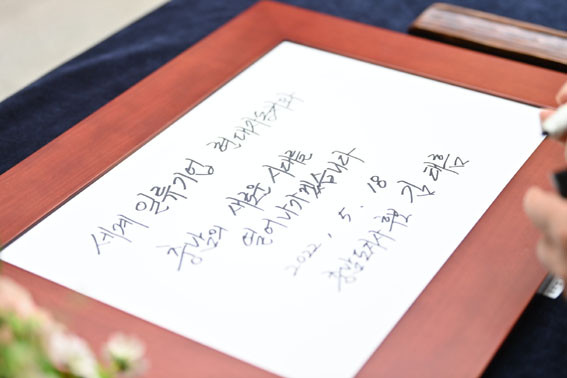 세계 일류기업 현대자동차와
충남의 새로운 시대를
열어나가겠습니다
2022. 5. 18
충남도지사 후보 김태흠